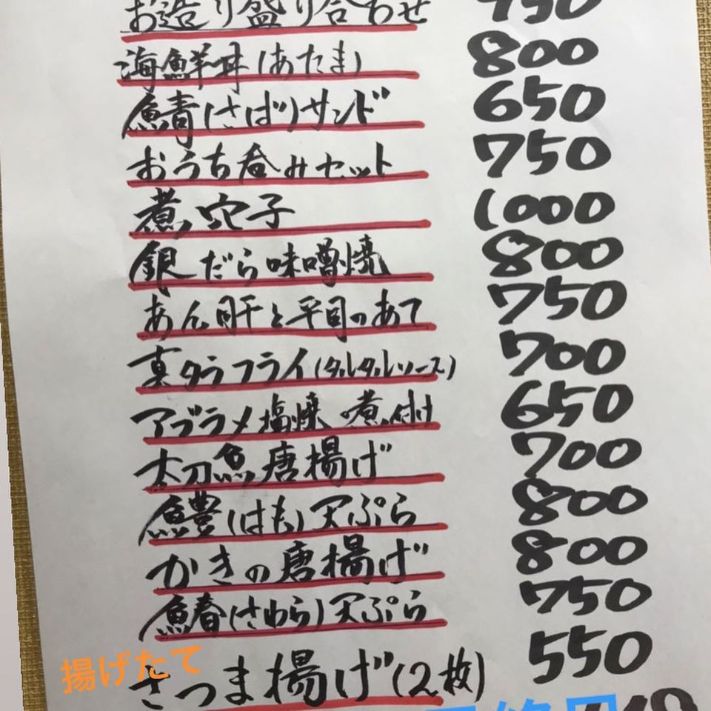 お造り盛り合わせ 750
海鮮丼(あたま) 800
鯖(さば)サンド 650
おうち呑みセット 750
煮穴子 1000
銀だら味噌焼 800
あん肝と平目のあて 750
真タラフライ(タルタルソース) 700
アブラメ塩焼・煮付け 650
太刀魚唐揚げ 700
鱧(はも)天ぷら 800
かきの唐揚げ 800
鰆(さわら)天ぷら 750
揚げたて
さつま揚げ(2枚) 550